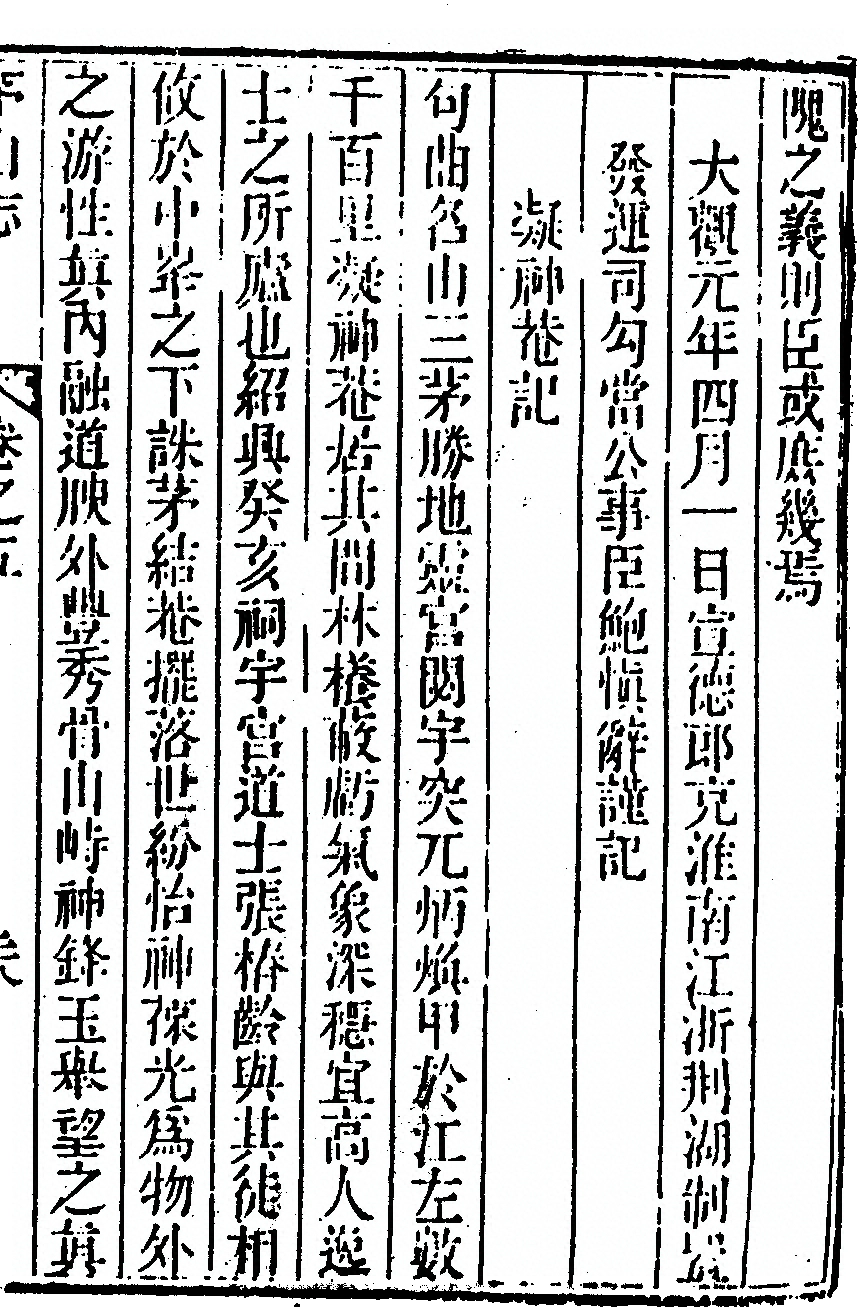 愧之義則臣或庶幾焉
大觀元年四月一日宣德郎充淮南江浙荆湖制置
發運司勾當公事臣鮑慎辭謹記
凝神菴記
句曲名山三茅勝地靈宮閟宇突兀炳煥甲於江左數
千百里凝神菴居其間林樾蔽虧氣象深穩宜高人逸
士之所廬也紹興癸亥祠宇宮道士張椿齡與其徒相
攸於中峯之下誅茅結菴擺落世紛怡神葆光爲物外
之游性眞內融道腴外豐秀骨山峙神鋒玉舉望之眞
茅山志
卷之五